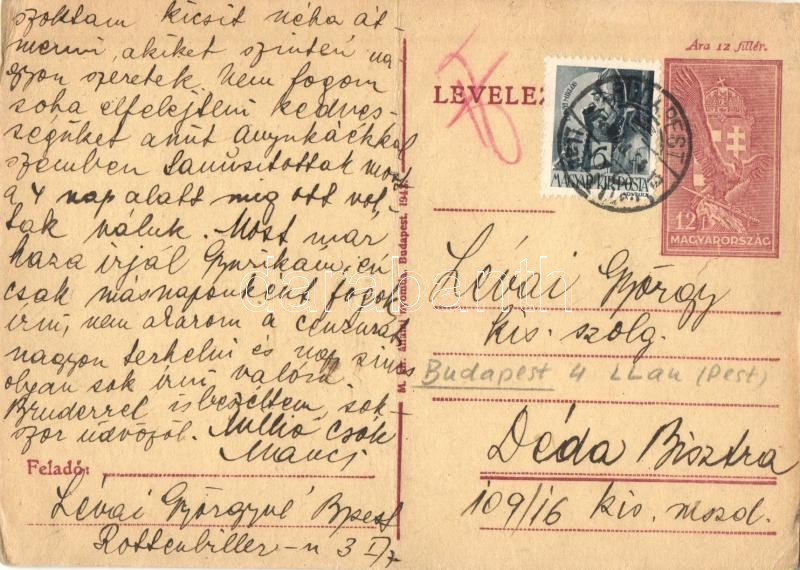 szoktam kicsit néha át
menni, akiket szintén na
gyon szeretek. Nem fogom
soha elfelejteni kedves-
ségüket amit anyukáékkal
szemben tanusitottak most
a 4 nap alatt mig ott vol-
tak náluk. Most már
haza irjál Gyurikam, én
csak másnaponként fogok
irni, nem akarom a cenzurát
nagyon terhelni és nap sincs
olyan sok irni valóm.
Bruderrel is beszéltem, sok-
szor üdvözöl. Millió csók
Manci
Feladó:
Lévai Györgyné Bpest
Rottenbiller-u 3 I/7
M. kir. állami nyomda, Budapest. 194
Ára 12 fillér.
LEVELEZ
MAGYAR KIR. POSTA
BUDAPEST
12 f
MAGYARORSZÁG
Lévai György
kis. szolg.
Budapest 4 LLau (Pest)
Déda Bisztra
109/16 kis. mszd.
darabanth